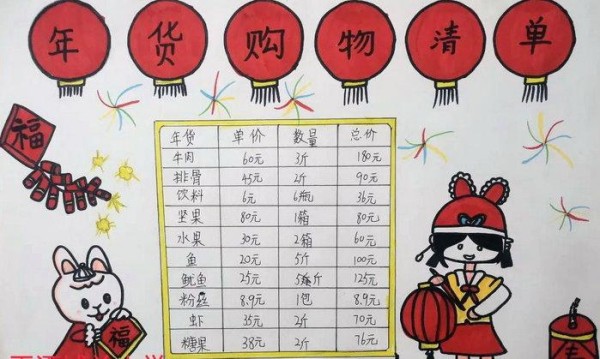 年货购物清单
福
年货 单价 数量 总价
牛肉 60元 3斤 180元
排骨 45元 2斤 90元
饮料 6元 6瓶 36元
坚果 80元 1箱 80元
水果 30元 2箱 60元
鱼 20元 5斤 100元
鱿鱼 25元 5斤 125元
粉丝 8.9元 1包 8.9元
虾 35元 2斤 70元
糖果 38元 2斤 76元
福